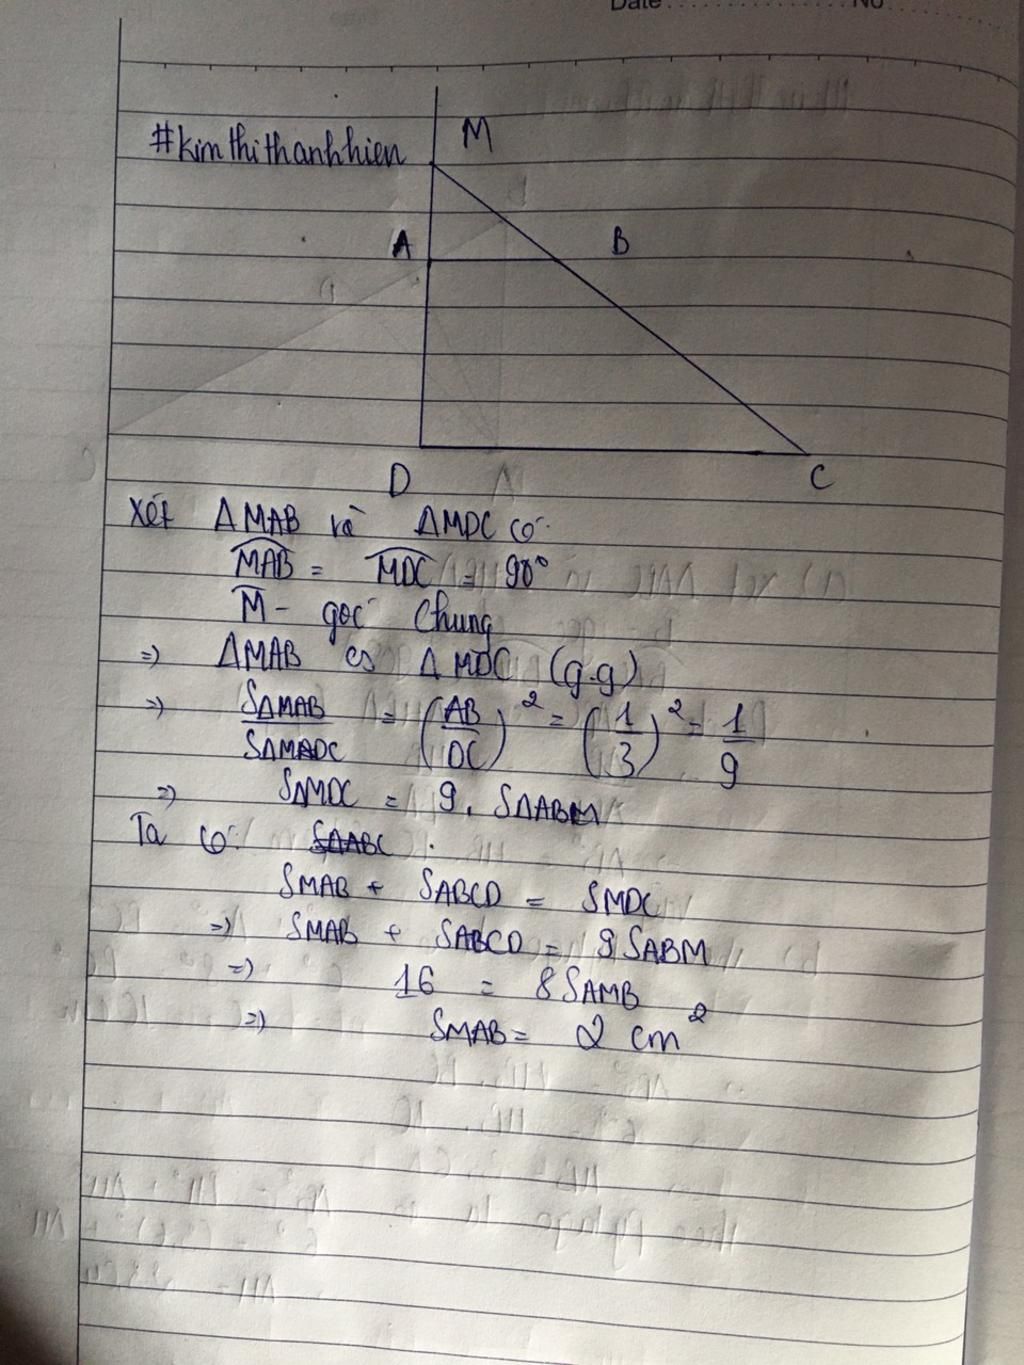 Date ............... No ...............
#kimthithanhhien
M
A
B
D
C
Xét ΔMAB và ΔMDC có:
MAB = MDC = 90°
M - góc chung
=) ΔMAB ∽ ΔMDC (g.g)
=) SΔMAB/SΔMADC = (AB/DC)² = (1/3)² = 1/9
=) SΔMDC = 9. SΔABM
Ta có: SΔABC :
SMAB + SABCD = SMDC
=) SMAB + SABCD = 9SABM
=) 16 = 8SAMB
=) SMAB = 2 cm²